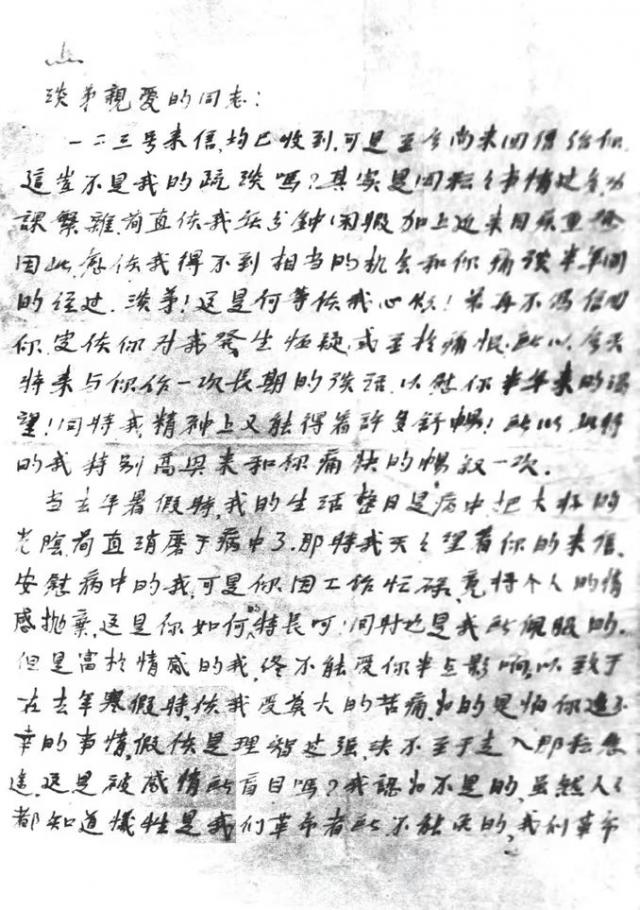 淡弟親愛的同志：
一二三号来信，均已收到，可是至今尚未回信给你，
這岂不是我的疏淡嗎？其实是因種々事情过多，功
課繁雜，简直使我無分钟闲暇，加上近来目疾重
因此，總使我得不到相当的机会和你痛谈半年间
的经过，淡弟！这是何等使我心煞！若再不写信回
你，定使你对我發生怀疑，或至於痛恨，所以，今天
特来与你作一次长期的谈话，以慰你半年来的渴
望！同時我精神上又能得着許多舒暢！所以，此時
的我特别高興来和你痛快的暢叙一次。
当去年暑假時，我的生活整日是病中，把大好的
光陰，简直消磨于病中了，那時我天々望着你的来信，
安慰病中的我，可是你因工作忙碌，竟将个人的情
感抛棄，这是你如何的特長呵！同时也是我所佩服的，
但是富於情感的我，终不能受你半点影响，以致于
在去年寒假時，使我受莫大的苦痛，为的是怕你遭不
幸的事情，假使是理智过强，决不至于走入那種危
途，这是被感情所盲目嗎？我認为不是的，虽然人々
都知道犧牲是我们革命者所不能免的，我们革命